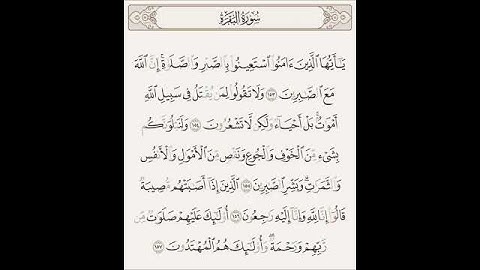 سُورَةُ الْبَقَرَةِ
يَٰٓأَيُّهَا ٱلَّذِينَ ءَامَنُوا۟ ٱسْتَعِينُوا۟ بِٱلصَّبْرِ وَٱلصَّلَوٰةِ ۚ إِنَّ ٱللَّهَ
مَعَ ٱلصَّٰبِرِينَ ١٥٣ وَلَا تَقُولُوا۟ لِمَن يُقْتَلُ فِى سَبِيلِ ٱللَّهِ
أَمْوَٰتٌۢ ۚ بَلْ أَحْيَآءٌ وَلَٰكِن لَّا تَشْعُرُونَ ١٥٤ وَلَنَبْلُوَنَّكُم
بِشَىْءٍ مِّنَ ٱلْخَوْفِ وَٱلْجُوعِ وَنَقْصٍ مِّنَ ٱلْأَمْوَٰلِ وَٱلْأَنفُسِ
وَٱلثَّمَرَٰتِ ۗ وَبَشِّرِ ٱلصَّٰبِرِينَ ١٥٥ ٱلَّذِينَ إِذَآ أَصَٰبَتْهُم مُّصِيبَةٌ
قَالُوٓا۟ إِنَّا لِلَّهِ وَإِنَّآ إِلَيْهِ رَٰجِعُونَ ١٥٦ أُو۟لَٰٓئِكَ عَلَيْهِمْ صَلَوَٰتٌ مِّن
رَّبِّهِمْ وَرَحْمَةٌ ۖ وَأُو۟لَٰٓئِكَ هُمُ ٱلْمُهْتَدُونَ ١٥٧